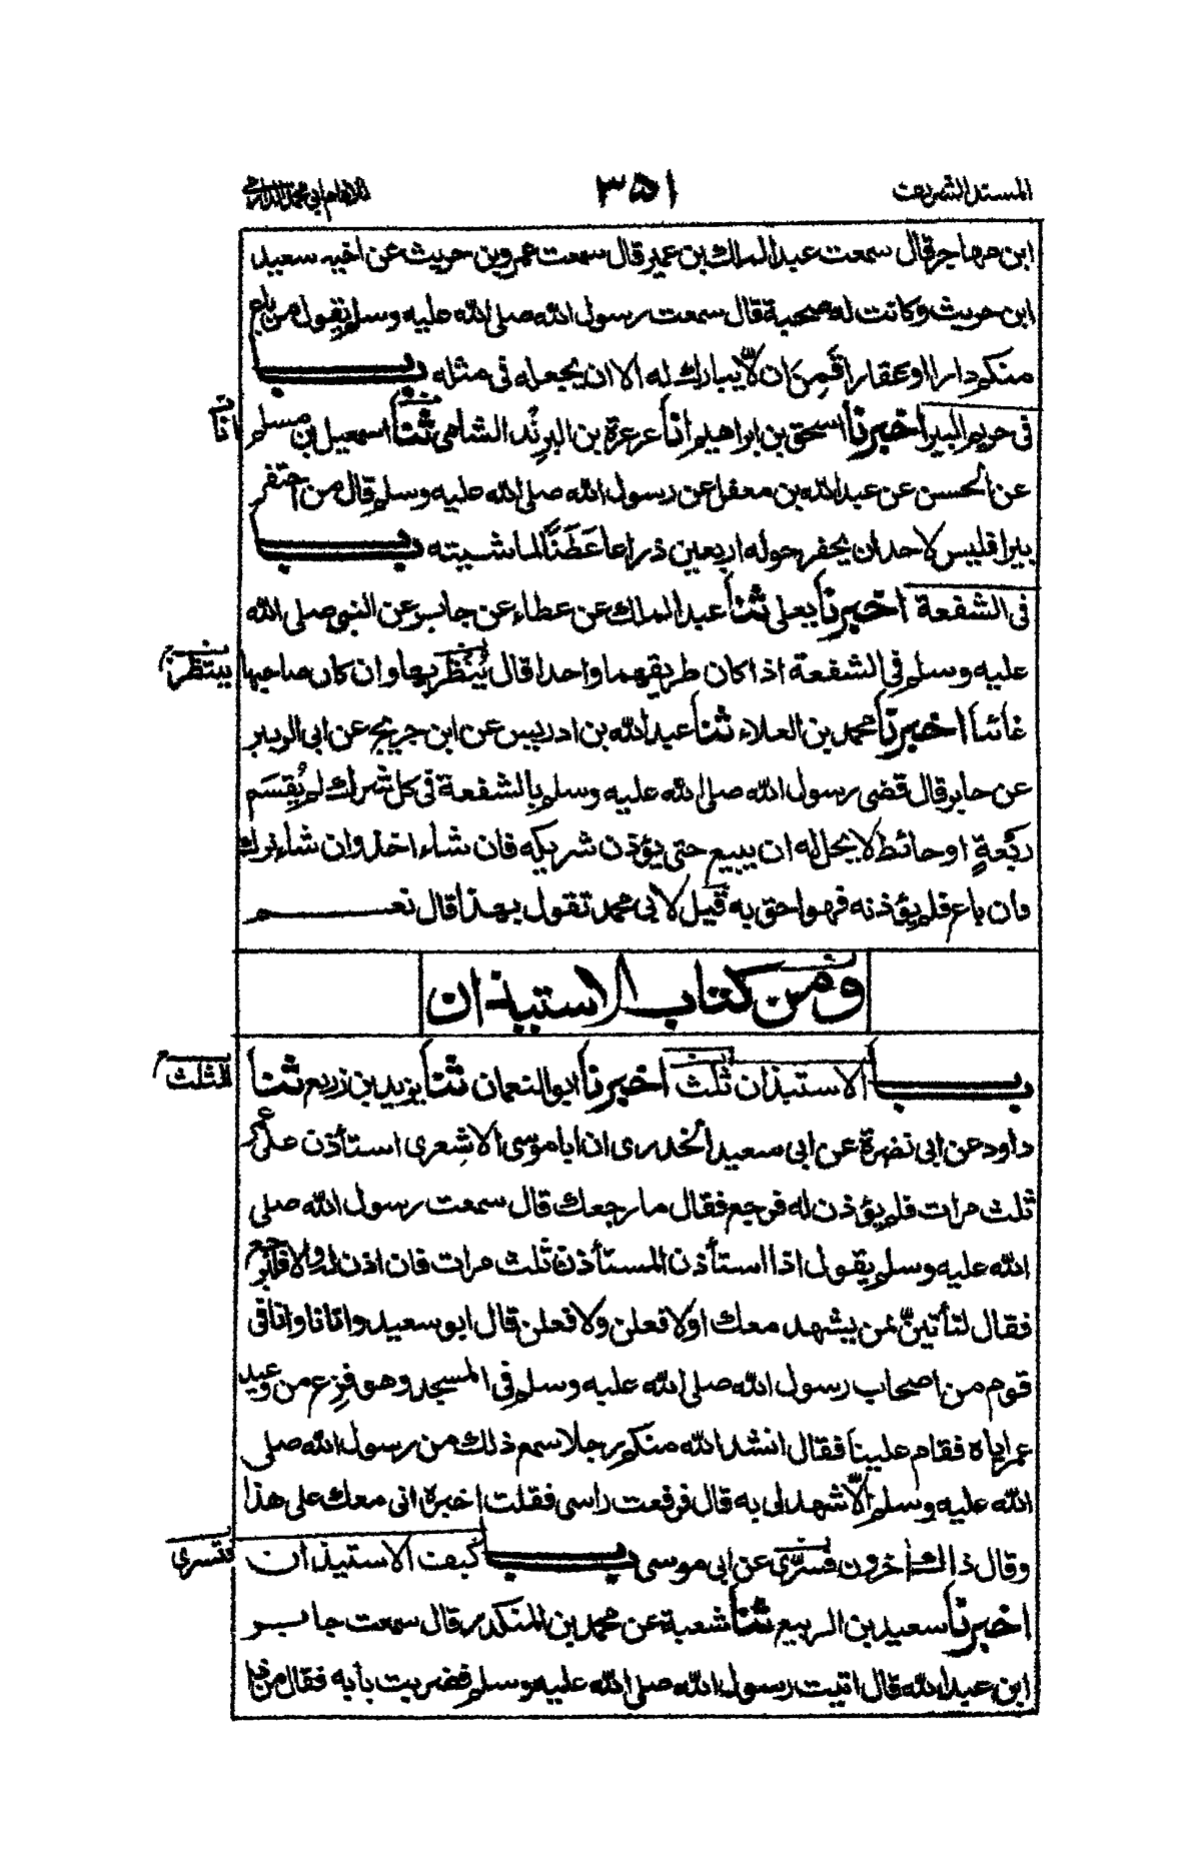 المسند الشريف ٣٥١ للامام ابي محمد الدارمي
ابن مهاجر قال سمعت عبد الملك بن عمير قال سمعت عمرو بن حريث عن اخيه سعيد
ابن حريث وكانت له صحبة قال سمعت رسول الله صلى الله عليه وسلم يقول من باع
منكم دارا او عقارا قَمِنٌ ان لّا يبارك له الا ان يجعله فى مثله بــــاب
فى حريم البير اخبرنا اسحق بن ابراهيم انا عرعرة بن البرِنْد الشامى ثنا اسمعيل بن مسلم
انا
عن الحسن عن عبد الله بن مغفل عن رسول الله صلى الله عليه وسلم قال من احتفر
بيرا فليس لاحد ان يحفر حوله اربعين ذراعا عَطَنًا لماشيته بــــاب
فى الشفعة اخبرنا يعلى ثنا عبد الملك عن عطاء عن جابر عن النبى صلى الله
عليه وسلم فى الشفعة اذا كان طريقهما واحدا قال يُنْظَر بها وان كان صاحبها
ينتظر
غائبا اخبرنا محمد بن العلاء ثنا عبد الله بن ادريس عن ابن جريج عن ابى الزبير
عن جابر قال قضى رسول الله صلى الله عليه وسلم بالشفعة فى كل شرك لم يُقْسَم
رَبْعةٍ او حائط لا يحل له ان يبيع حتى يؤذن شريكه فان شاء اخذ وان شاء ترك
وان باع فلم يؤذنه فهو احق به قيل لابى محمد تقول بهذا قال نعم
ومن كتاب الاستيذان
بــــاب الاستيذان ثلث اخبرنا ابو النعمان ثنا يزيد بن زريع ثنا
الثلث
داود عن ابى نضرة عن ابى سعيد الخدرى ان ابا موسى الاشعرى استأذن على عمر
ثلث مرات فلم يؤذن له فرجع فقال ما رجعك قال سمعت رسول الله صلى
الله عليه وسلم يقول اذا استأذن المستأذن ثلث مرات فان اذن له والا فليرجع
فقال لتأتينّ بمن يشهد معك او لافعلن ولافعلن قال ابو سعيد واتانا وانا فى
قوم من اصحاب رسول الله صلى الله عليه وسلم فى المسجد وهو فزِع من وعيد
عمر اياه فقام علينا فقال انشد الله منكم رجلا سمع ذلك من رسول الله صلى
الله عليه وسلم الّا شهد لى به قال فرفعت راسى فقلت اخبره انى معك على هذا
وقال ذالك اخرون فسُرِّى عن ابى موسى بــــاب كيف الاستيذان
فتسرى
اخبرنا سعيد بن الربيع ثنا شعبة عن محمد بن المنكدر قال سمعت جابر
ابن عبد الله قال اتيت رسول الله صلى الله عليه وسلم فضربت بابه فقال من ذا